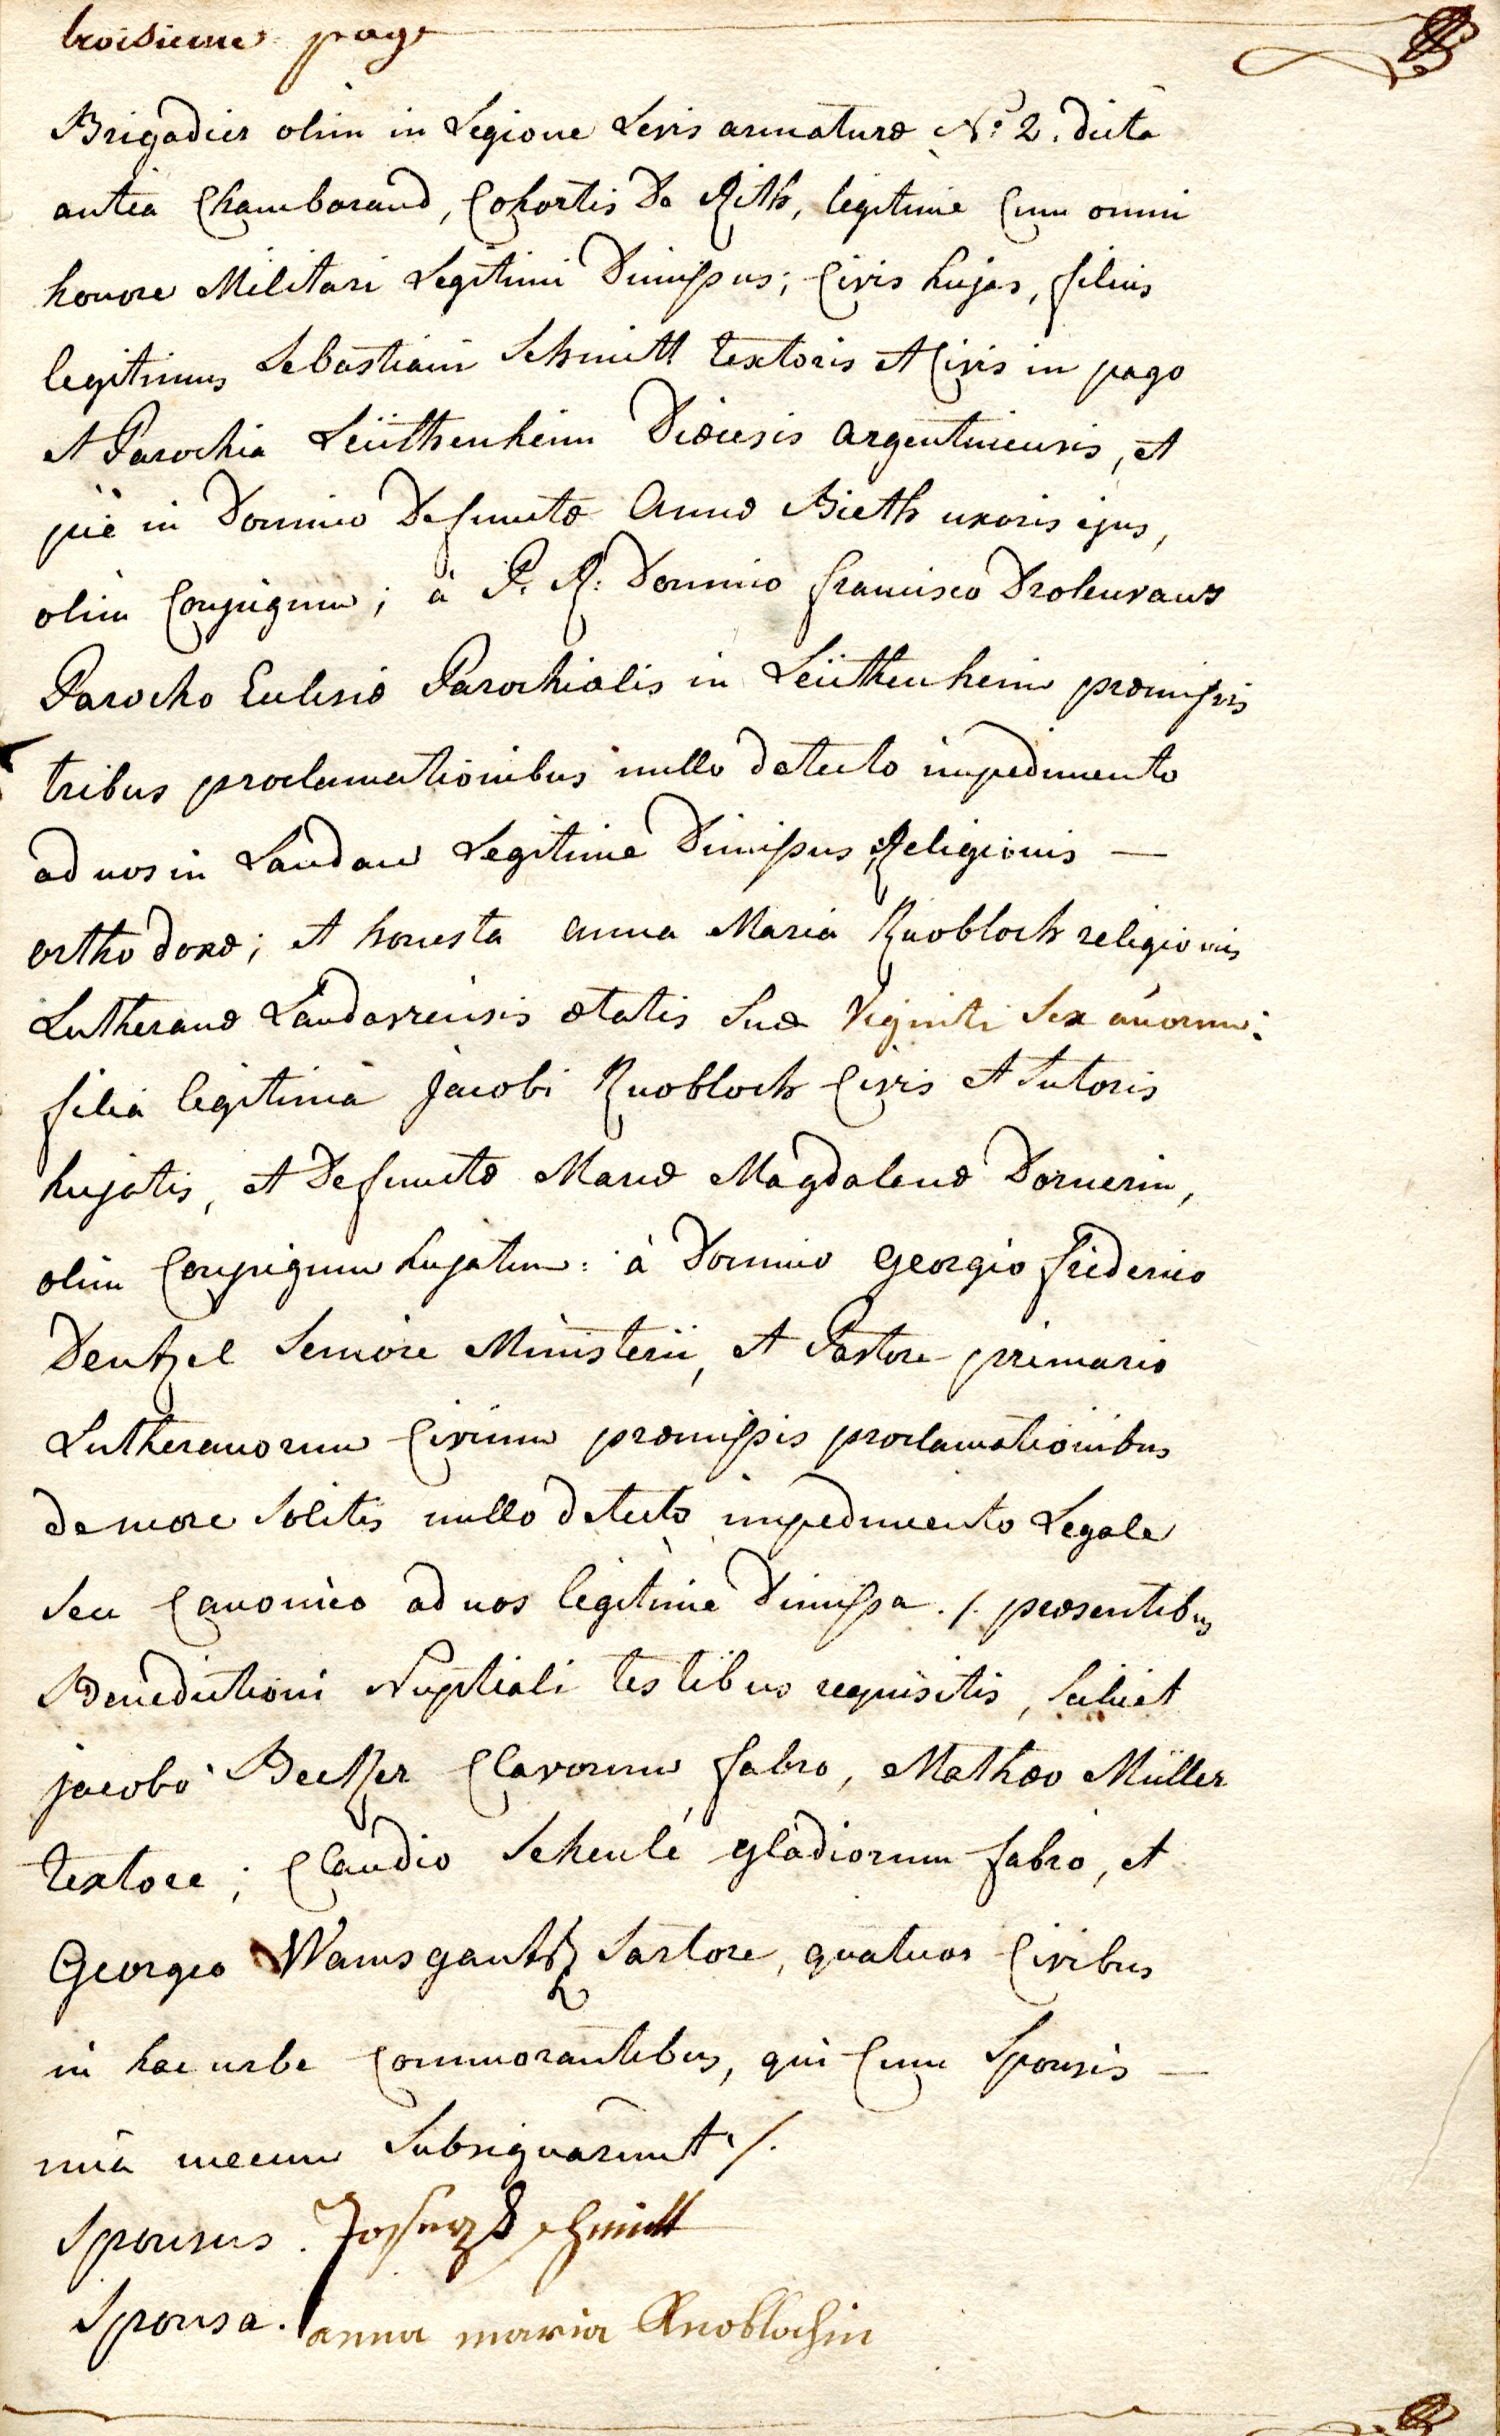 troisieme page
Brigadier olim in Legione Levis armaturæ N.º 2. dicta
antea Chamborand, Cohortis De Rith, legitime Cum omni
honore Militari Legitimi Dimissus; Civis hujas, filius
legitimus Sebastiani Schmitt textoris et Civis in pago
et Parochia Leütthenheim Diœcesis argentinensis, et
piè in Domino Defunctæ Annæ Bieth uxoris ejus,
olim Conjugum; à P. R. Domino francisco
Parocho Eclesiæ Parochialis in Leütthenheim præmissis
tribus proclamationibus nullo detecto impedimento
ad nos in Landau Legitime Dimissus Religionis —
orthodoxæ; et honesta anna Maria Knobloch religionis
Lutheranæ Landaviensis ætatis Suæ Viginti Sex añorum:
filia legitima jacobi Knobloch Civis et Sutoris
hujatis, et Defunctæ Mariæ Magdalenæ Dornerin,
olim Conjugum hujatum: à Domino Georgio friderico
Dentzel Seniore Ministerii, et Pastore primario
Lutheranorum Civium præmissis proclamationibus
de more Solitis nullo detecto impedimento Legale
Seu Canonico ad nos legitime Dimissa ./. præsentibus
Benedictioni Nuptiali testibus requisitis, Scilicet
jacobo Becker Clavorum fabro, Mathæo Müller
textore; Claudio Scheulé gladiorum fabro, et
Georgio Wamsgantz Sartore, quatuor Civibus
in hac urbe Commorantibus, qui Cum Sponsis —
unà mecum Subsignarunt ./.
Sponsus. Joseph Schmitt
Sponsa. anna maria Knoblochin